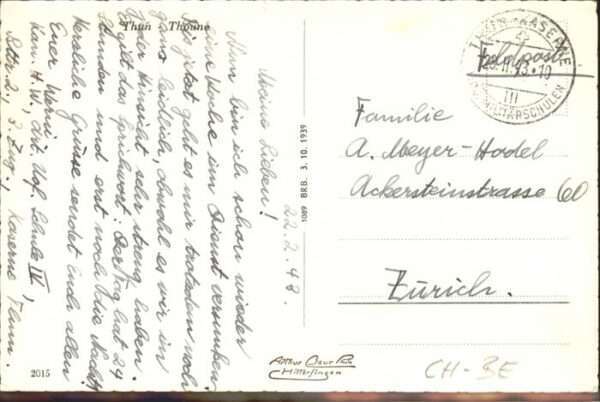 Thun - Thoune
22.2.43.
Meine Lieben!
Nun bin ich schon wieder
eine Woche im Dienst versunken.
Bis jetzt geht es mir trotzdem noch
ganz leidlich, obwohl es wir in
hier ziemlich sehr streng haben.
Es gilt das Sprichwort: Der Tag hat 24
Stunden und erst noch die Nacht!
Herzliche Grüsse sendet Euch allen
Euer Werni
Kan. H.W., Art. Uof. Schule IV,
Bttr. 2, 3. Zug,
Kaserne Thun.
2015
1089 BRB. 3. 10. 1939
THUN - KASERNE
Feldpost
23.II.43.-10
III
MILITÄRSCHULEN
Familie
A. Meyer-Hodel
Ackersteinstrasse 60
Zürich.
Arthur Baur
Hilterfingen
CH-BE